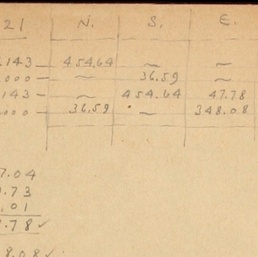 21 N. S. E.
.143 — 454.64 ~ ~
.000 — ~ 36.59 ~
.143 — ~ 454.64 47.78
.000 — 36.59 ~ 348.08
7.04
.73
.01
.78 ✓
8.08 ✓